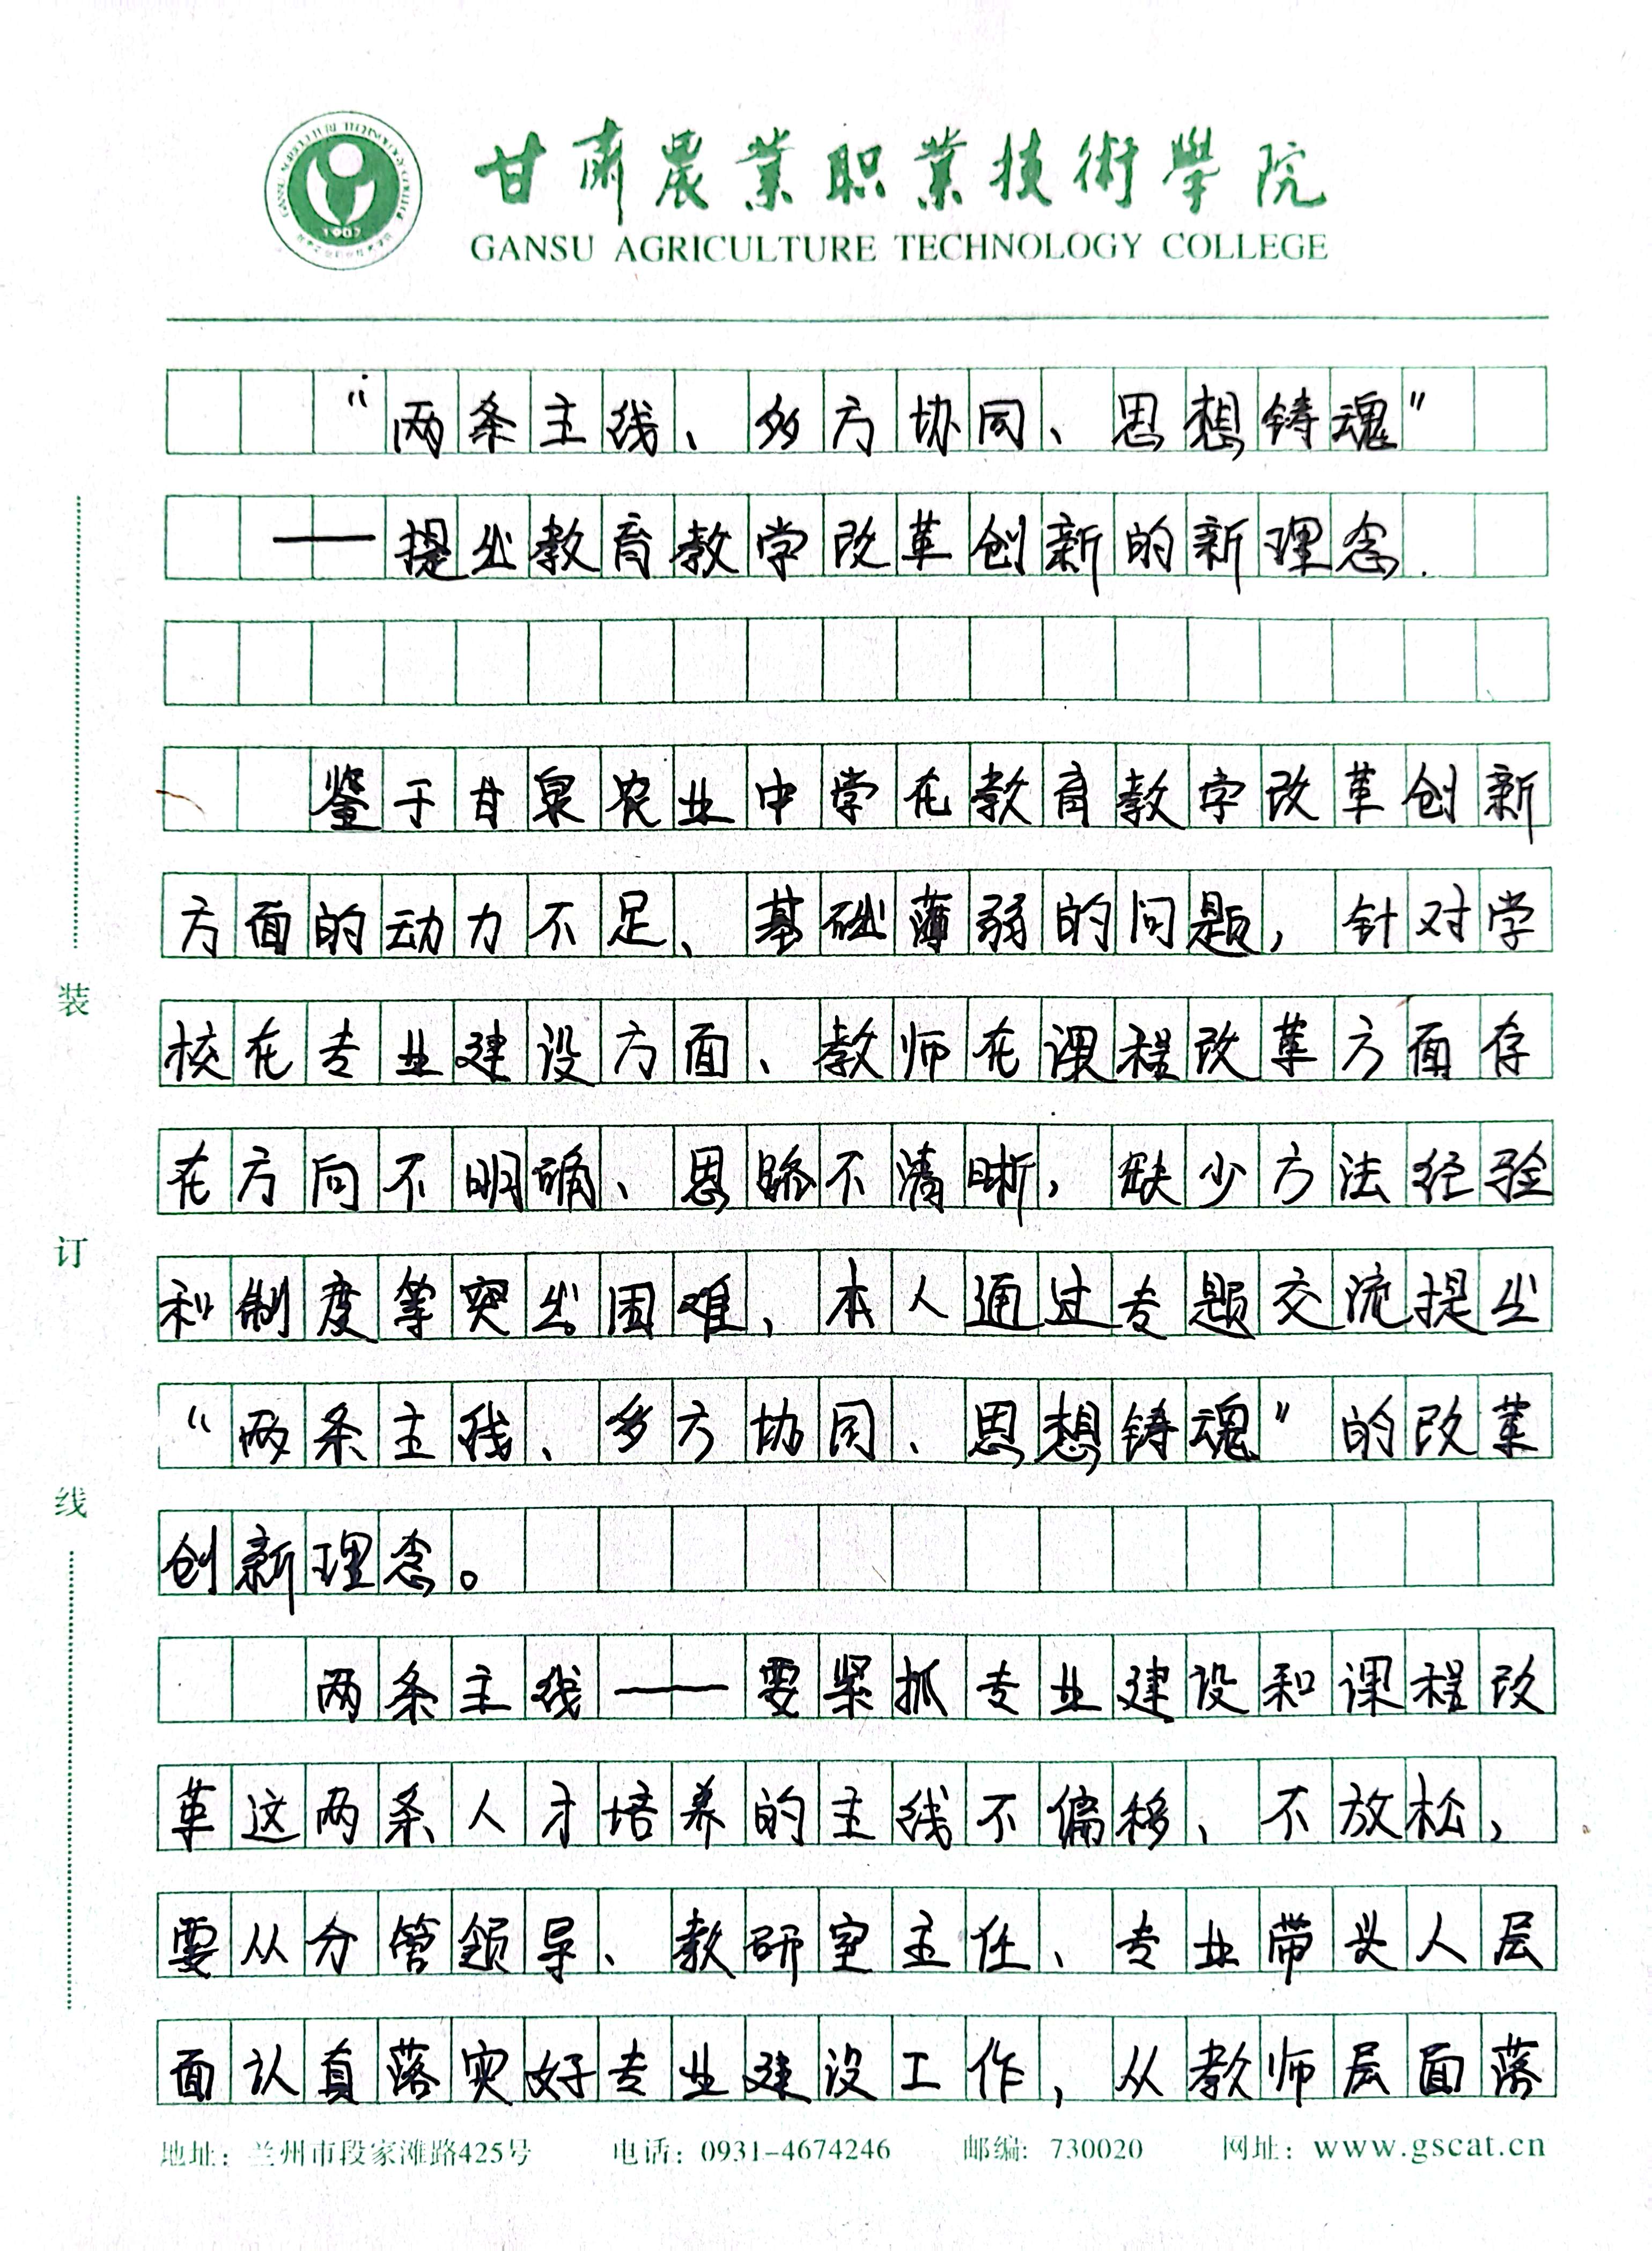 甘肅農業职業技術學院
GANSU AGRICULTURE TECHNOLOGY COLLEGE
“两条主线、多方协同、思想铸魂”
——提出教育教学改革创新的新理念.
鉴于甘泉农业中学在教育教学改革创新
方面的动力不足、基础薄弱的问题，针对学
校在专业建设方面、教师在课程改革方面存
在方向不明确、思路不清晰，缺少方法经验
和制度等突出困难，本人通过专题交流提出
“两条主线、多方协同、思想铸魂”的改革
创新理念。
两条主线——要紧抓专业建设和课程改
革这两条人才培养的主线不偏移、不放松，
要从分管领导、教研室主任、专业带头人层
面认真落实好专业建设工作，从教师层面落
装
订
线
地址：兰州市段家滩路425号 电话：0931-4674246 邮编：730020 网址：www.gscat.cn